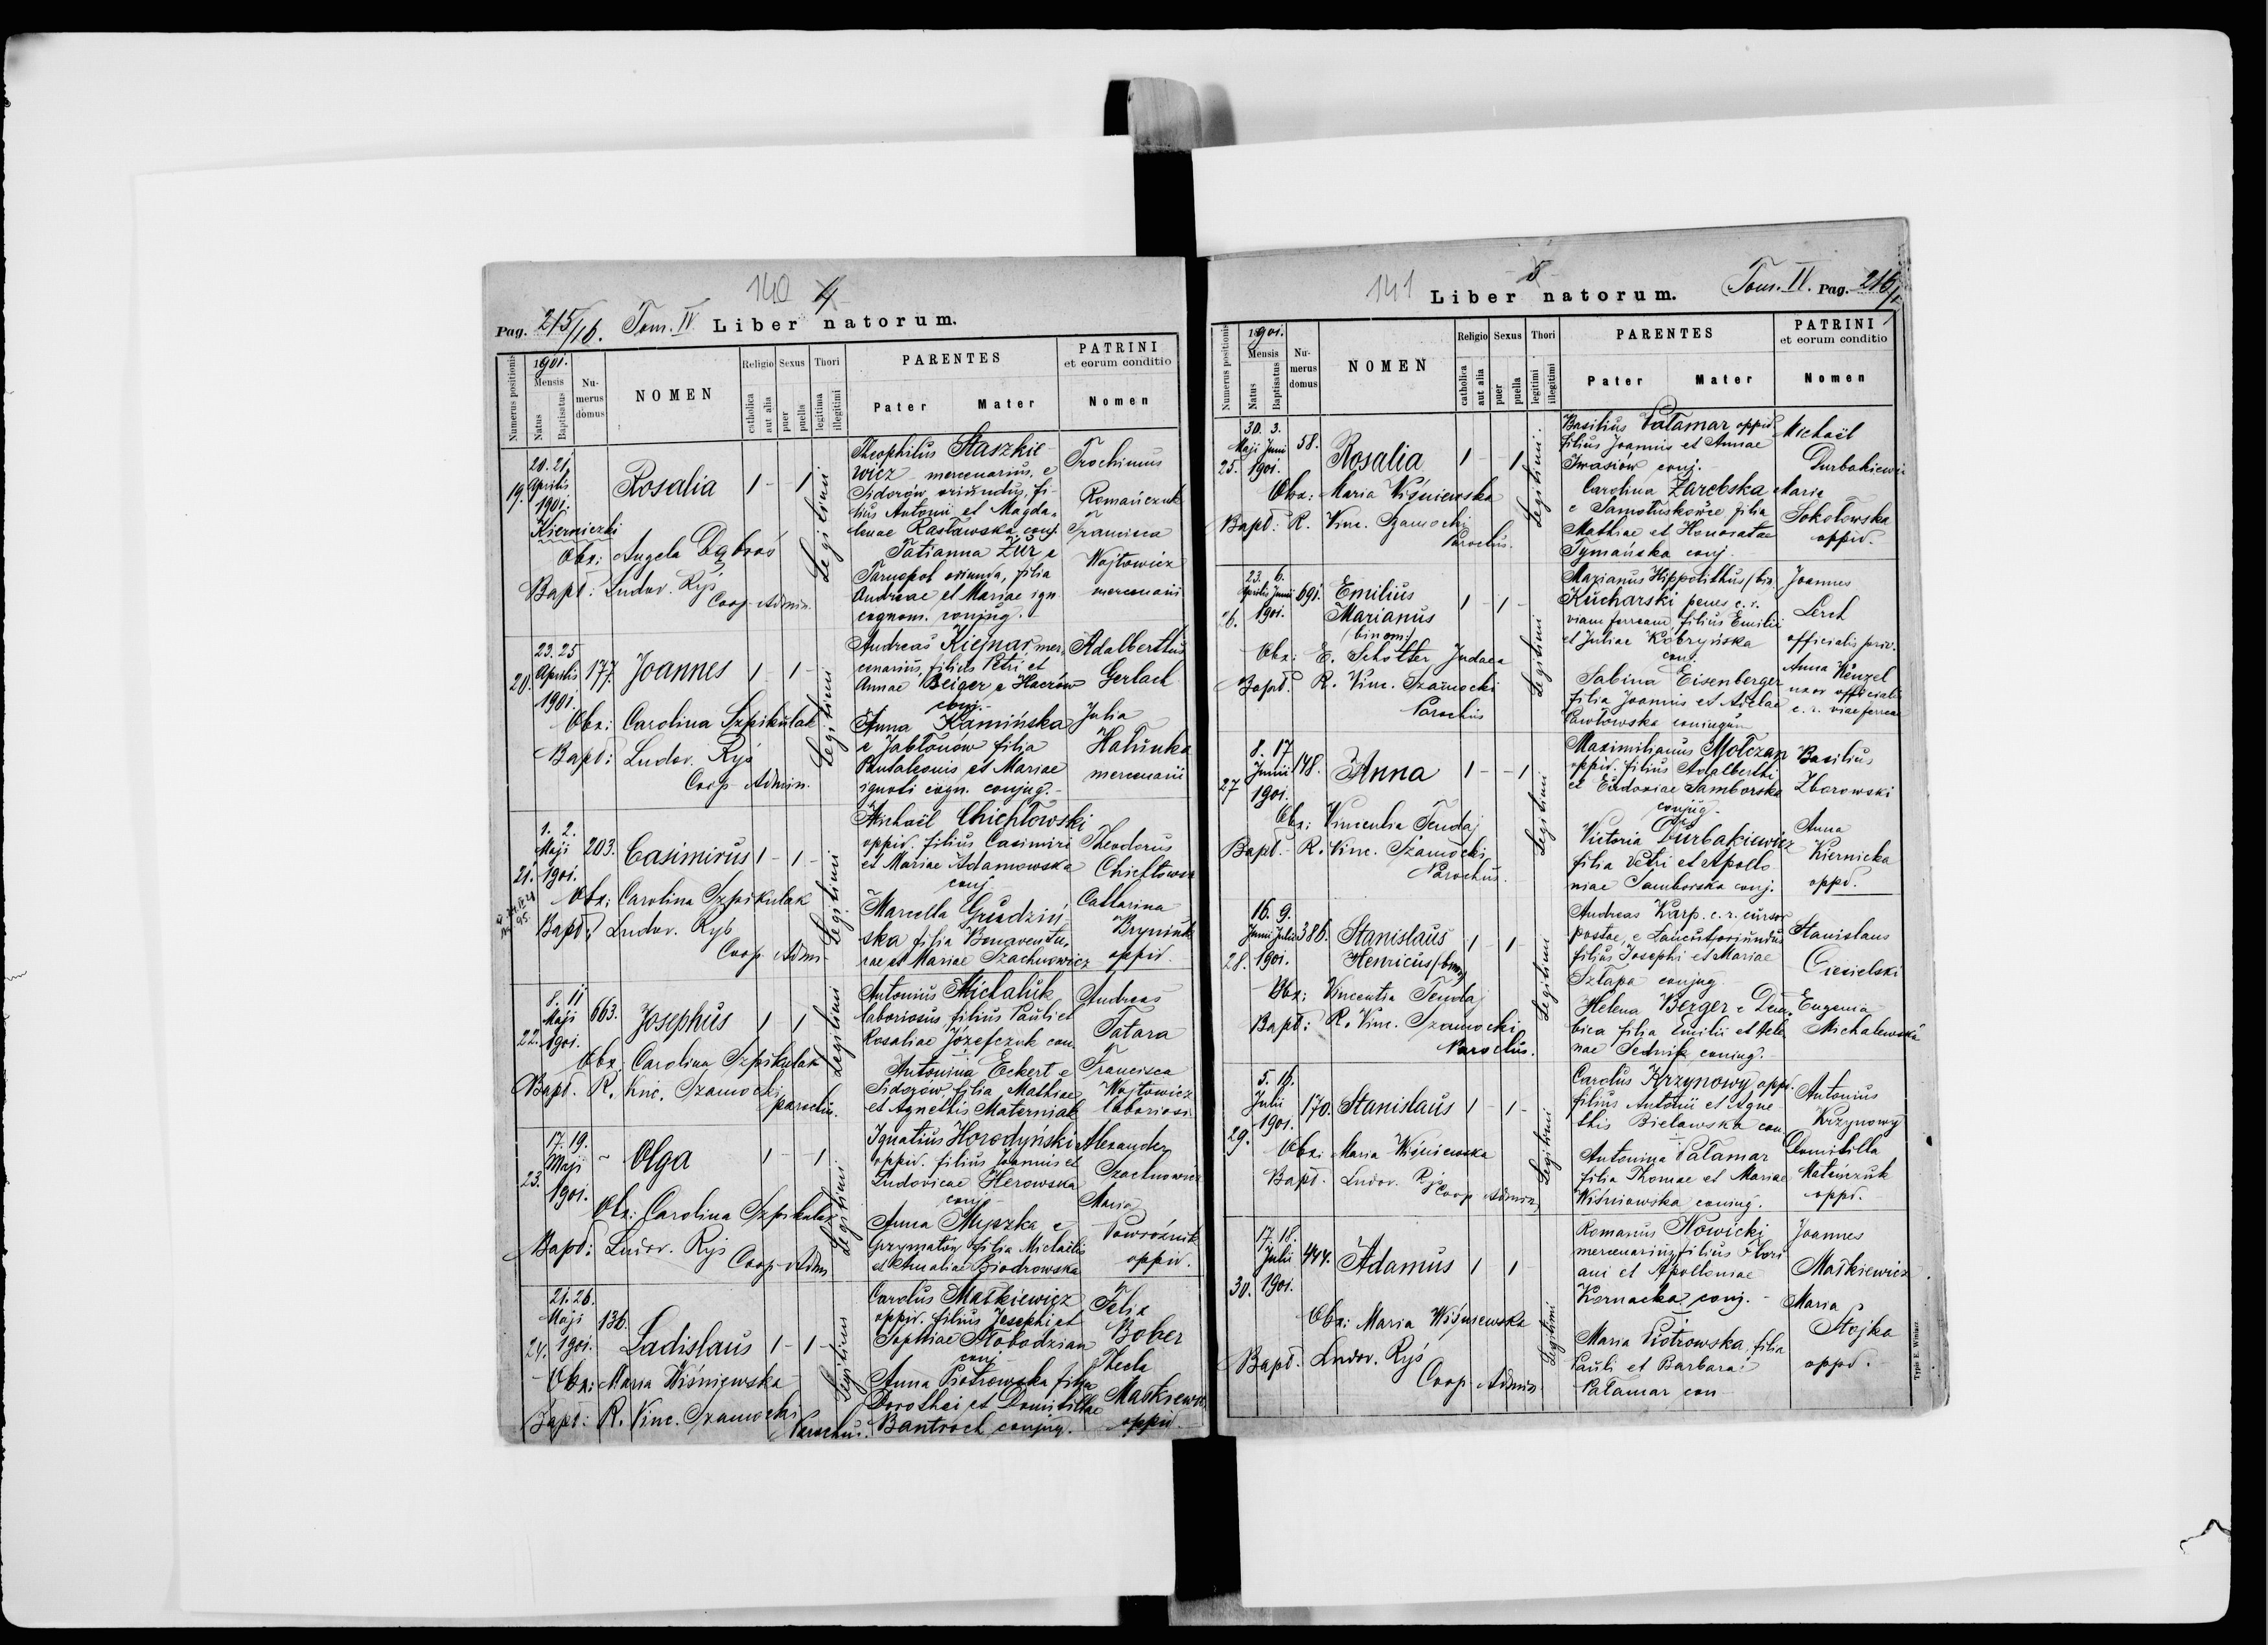 140 4
Pag. 215/16. Tom. IV. Liber natorum.
Numerus positionis
1901.
Mensis
Natus
Baptisatus
Numerus domus
NOMEN
Religio
catholica
aut alia
Sexus
puer
puella
Thori
legitima
illegitimi
PARENTES
Pater Mater
PATRINI
et eorum conditio
Nomen
19.
20. 21.
Aprilis
1901.
Kierniczki
Rosalia 1 - - 1
Legitimi
Obx: Angela Dąbroś
Bapt: Ludov. Ryś
Coop. Admin.
Theophilus Staszkie-
wicz mercenarius, e
Sidorów oriundus, fi-
lius Antonii et Magda-
lenae Rasławska conj.
Tatianna Żur e
Tarnopol oriunda, filia
Andreae et Mariae ign
cognom. conjug.
Trochimus
Romańczuk
Francisca
Wojtowicz
mercenarii
20.
23. 25
Aprilis
1901.
177. Joannes 1 - 1 -
Legitimi
Obx: Carolina Szpikulak
Bapt: Ludov. Ryś
Coop. Admin.
Andreas Kiernar mer-
cenarius, filius Petri et
Annae Beiger e Haczów
conj.
Anna Kamińska
e Jabłonów filia
Pantaleonis et Mariae
ignoti cogn. conjug.-
Adalberthus
Gerlach
Julia
Hałunka
mercenarii
21.
1. 2.
Maji
1901.
203. Casimirus 1 - 1 -
Legitimi
Obx: Carolina Szpikulak
Bapt: Ludov. Ryś
Coop. Adm-
Michaël Chichłowski
oppid. filius Casimiri
et Mariae Adamowska
conj.
Marcella Grudziń-
ska filia Bonaventu-
rae et Mariae Szachnowicz
Theodorus
Chichłowski
Catharina
Bryniak
oppid.
22.
8. 11
Maji
1901.
663. Josephus 1 - 1
Legitimi
Obx: Carolina Szpikulak
Bapt. R. Vinc. Szamocki
parochus.
Antonius Michaluk
laboriosus, filius Pauli et
Rosaliae Józefczuk con.
Antonina Eckert e
Sidorów, filia Mathiae
et Agnethis Materniak
Andreas
Tatara
Francisca
Wojtowicz
laboriosi
23.
17. 19.
Maji
1901.
Olga 1 - 1
Legitimi
Obx: Carolina Szpikulak
Bapt: Ludov. Ryś
Coop. Adm
Ignatius Horodyński
oppid. filius Joannis et
Ludovicae Herowska
conj.
Anna Myszka e
Grzymałów filia Michaëlis
et Amaliae Biodrowska
Alexander
Szachnowicz
Maria
Powroźnik
oppid.
24.
21. 26.
Maji
1901.
136.
Ladislaus 1 - 1 -
Legitimi
Obx: Maria Wiśniewska
Bapt: R. Vinc. Szamocki
Parochus.
Carolus Maśkiewicz
oppid. filius Josephi et
Sophiae Słobodzian
conj
Anna Piotrowska filia
Dorothei et Domitillae
Bantroch conjug.
Felix
Bober
Thecla
Maśkiewicz
oppid.
141 5
Liber natorum. Tom. IV. Pag. 216/
Numerus positionis
1901.
Mensis
Natus
Baptisatus
Numerus domus
NOMEN
Religio
catholica
aut alia
Sexus
puer
puella
Thori
legitimi
illegitimi
PARENTES
Pater Mater
PATRINI
et eorum conditio
Nomen
25.
30. 3.
Maji Juni
1901.
58. Rosalia 1 - - 1
Legitimi.
Obx: Maria Wiśniewska
Bapt: R. Vinc. Szamocki
Parochus.
Basilius Pałamar oppid.
filius Joannis et Annae
Iwasiów conj.
Carolina Zarebska
e Samołuskowce filia
Mathiae et Honoratae
Tymańska conj.
Michaël
Durbakiewicz
Maria
Sokołowska
oppid.
26.
23. 6.
Aprilis Junii
1901.
691. Emilius
Marianus
/binom:/
1 - 1 -
Legitimi
Obx: E. Schotter Judaea
Bapt. R. Vinc. Szamocki
Parochus
Marianus Hippolithus /bin.
Kucharski penes c. r.
viam ferream, filius Emilii
et Juliae Kobryńska
con.
Sabina Eisenberger
filia Joannis et Adelae
Pawłowska coniugum
Joannes
Lerch
officialis priv.
Anna Wenzel
uxor officialis
c. r. viae ferreae
27
8. 17
Junii
1901.
148. Anna 1 - - 1
Legitimi
Obx: Vincentia Tendaj
Bapt. - R. Vinc. Szamocki
Parochus.
Maximilianus Mołczan
oppid. filius Adalberthi
et Eudoxiae Samborska
conjug.
Victoria Durbakiewicz
filia Petri et Apollo-
niae Samborska conj.
Basilius
Zborowski
Anna
Kiernicka
oppd.
28.
16. 9.
Junii Julii
1901.
386. Stanislaus
Henricus /binom/
1 - 1 -
Legitimi
Obx: Vincentia Tendaj
Bapt: R. Vinc. Szamocki
Parochus.
Andreas Karp. c. r. cursor
postae, e Łańcut oriundus
filius Josephi et Mariae
Szłapa conjug.
Helena Berger e Dem-
bica filia Emilii et Hele-
nae Sednik coniug.
Stanislaus
Ciesielski
Eugenia
Michalewska
29.
5. 16.
Julii
1901.
170. Stanislaus 1 - 1 -
Legitimi
Obx: Maria Wiśniewska
Bapt. Ludov. Ryś
Coop. Admin.
Carolus Krzynowy, oppd.
filius Antonii et Agne-
this Bielawska con
Antonina Pałamar
filia Thomae et Mariae
Wiśniowska coniug.
Antonius
Krzynowy
Domitilla
Matańczuk
oppd.
30.
17. 18.
Julii
1901.
444. Adamus 1 1
Legitimi
Obx: Maria Wiśniewska
Bapt. Ludov. Ryś
Coop. Admin.
Romanus Nowicki
mercenarius, filius Flori-
ani et Apolloniae
Kernacka conj.
Maria Piotrowska, filia
Pauli et Barbarae
Pałamar con
Joannes
Maśkiewicz
Maria
Stojka
oppd.
Typis E. Winiarz.